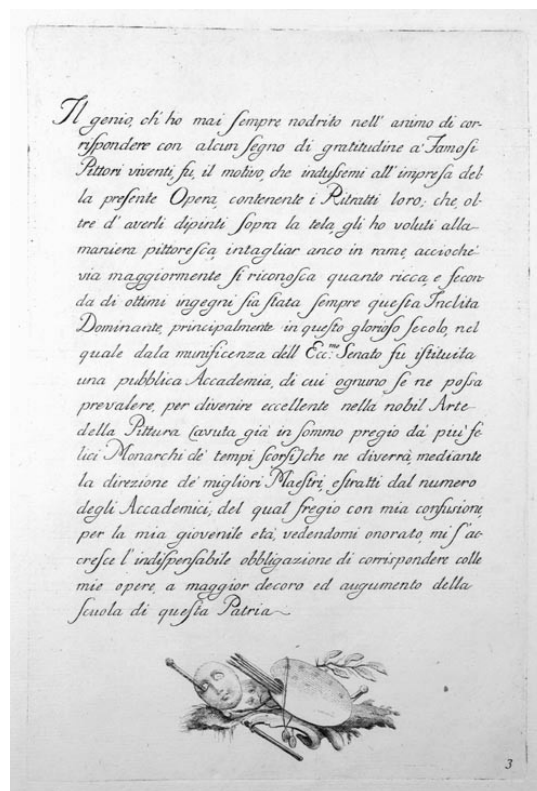 Il genio, ch' ho mai sempre nodrito nell' animo di cor-
rispondere con alcun segno di gratitudine a' Famosi
Pittori viventi, fu, il motivo, che indussemi all' impresa del
la presente Opera, contenente i Ritratti loro; che, ol-
tre d' averli dipinti sopra la tela, gli ho voluti alla
maniera pittoresca, intagliar anco in rame, acciochè
via maggiormente si riconosca quanto ricca, e fecon-
da di ottimi ingegni sia stata sempre questa Inclita
Dominante, principalmente in questo glorioso secolo, nel
quale dala munificenza dell' Ecc.mo Senato fu istituita
una pubblica Accademia, di cui ognuno se ne possa
prevalere, per divenire eccellente nella nobil Arte
della Pittura (avuta già in sommo pregio da' più fe
lici Monarchi de' tempi scorsi) che ne diverrà, mediante
la direzione de' migliori Maestri, estratti dal numero
degli Accademici; del qual fregio con mia confusione,
per la mia giovenile età, vedendomi onorato, mi s' ac-
cresce l' indispensabile obbligazione di corrispondere colle
mie opere, a maggior decoro ed augumento della
scuola di questa Patria
3